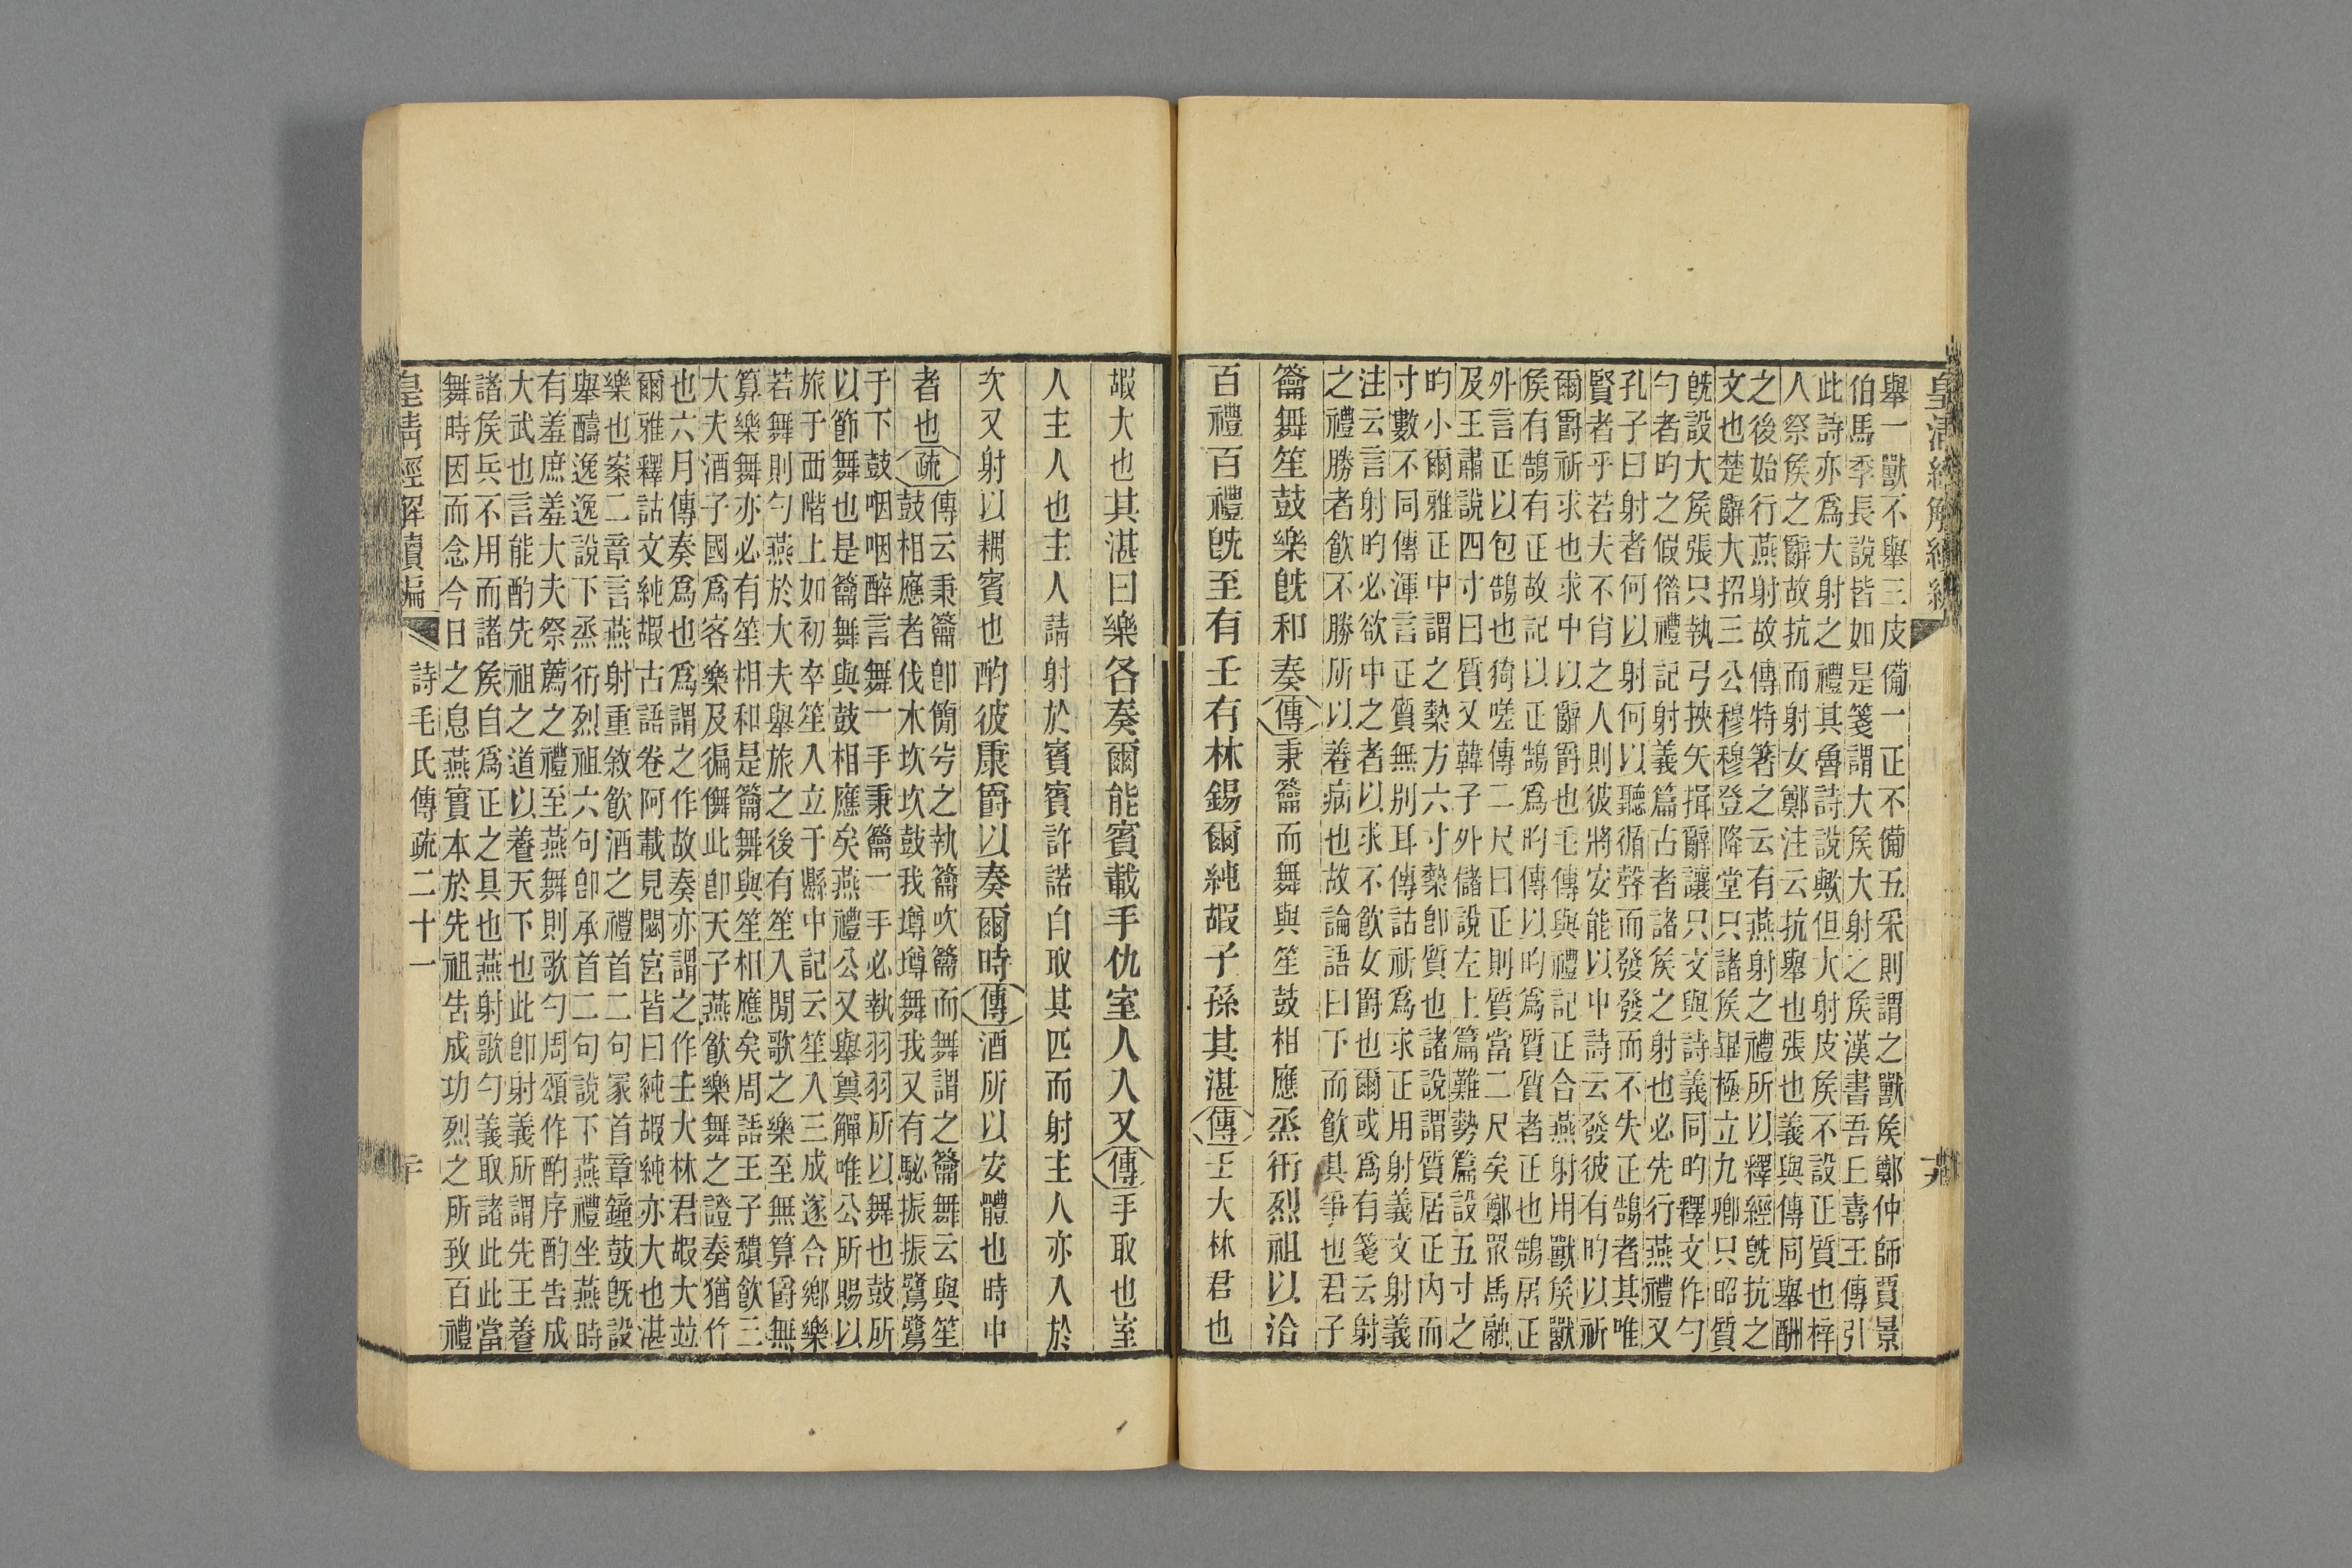 皇清經解續編
舉一獸不舉三皮備一正不備五采則謂之獸矦鄭仲師賈景
伯馬季長說皆如是箋謂大矦大射之矦漢書吾丘壽王傳引
此詩亦爲大射之禮其魯詩說歟但大射皮矦不設正質也梓
人祭矦之辭故抗而射女鄭注云抗舉也張也義與傳同舉酬
之後始行燕射故傳特箸之云有燕射之禮所以釋經旣抗之
文也楚辭大招三公穆穆登降堂只諸矦畢極立九卿只昭質
旣設大矦張只執弓挾矢揖辭讓只文與詩義同旳釋文作勺
勺者旳之假借禮記射義篇古者諸矦之射也必先行燕禮又
孔子曰射者何以射何以聽循聲而發發而不失正鵠者其唯
賢者乎若夫不肖之人則彼將安能以中詩云發彼有旳以祈
爾爵祈求也求中以辭爵也毛傳與禮記正合燕射用獸矦獸
矦有鵠有正故記以正鵠爲旳傳以旳爲質質者正也鵠居正
外言正以包鵠也猗嗟傳二尺曰正則質當二尺矣鄭眾馬融
及王肅說四寸曰質又韓子外儲說左上篇難勢篇設五寸之
旳小爾雅正中謂之槷方六寸槷卽質也諸說謂質居正內而
寸數不同傳渾言正質無別耳傳詁祈爲求正用射義文射義
注云言射旳必欲中之者以求不飮女爵也爾或爲有箋云射
之禮勝者飮不勝所以養病也故論語曰下而飮其爭也君子
籥舞笙鼓樂旣和奏傳秉籥而舞與笙鼓相應烝衎烈祖以洽
百禮百禮旣至有壬有林錫爾純嘏子孫其湛傳壬大林君也
嘏大也其湛曰樂各奏爾能賓載手仇室人入又傳手取也室
人主人也主人請射於賓賓許諾自取其匹而射主人亦入於
次又射以耦賓也酌彼康爵以奏爾時傳酒所以安體也時中
者也疏傳云秉籥卽簡兮之執籥吹籥而舞謂之籥舞云與笙
鼓相應者伐木坎坎鼓我墫墫舞我又有駜振振鷺鷺
于下鼓咽咽醉言舞一手秉籥一手必執羽羽所以舞也鼓所
以節舞也是籥舞與鼓相應矣燕禮公又舉奠觶唯公所賜以
旅于西階上如初卒笙入立于縣中記云笙入三成遂合鄉樂
若舞則勺燕於大夫舉旅之後有笙入閒歌之樂至無算爵無
算樂舞亦必有笙相和是籥舞與笙相應矣周語王子穨飮三
大夫酒子國爲客樂及徧儛此卽天子燕飮樂舞之證奏猶作
也六月傳奏爲也爲謂之作故奏亦謂之作壬大林君嘏大竝
爾雅釋詁文純嘏古語卷阿載見閟宮皆曰純嘏純亦大也湛
樂也案二章言燕射重敘飮酒之禮首二句冡首章鐘鼓旣設
舉醻逸逸說下烝衎烈祖六句卽承首二句說下燕禮坐燕時
有羞庶羞大夫祭薦之禮至燕舞則歌勺周頌作酌序酌告成
大武也言能酌先祖之道以養天下也此卽射義所謂先王養
諸矦兵不用而諸矦自爲正之具也燕射歌勺義取諸此此當
舞時因而念今日之息燕實本於先祖告成功烈之所致百禮
皇清經解續編 詩毛氏傳疏二十一